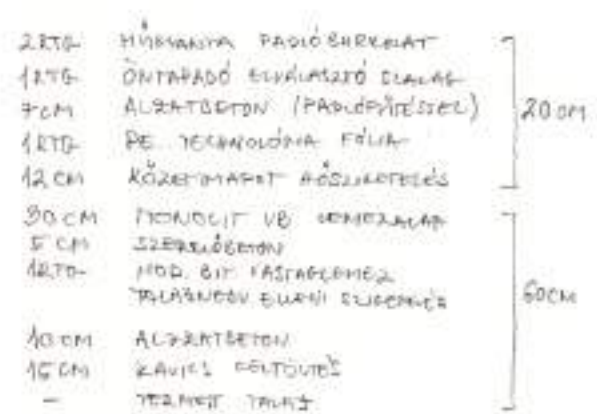 2 RTG MŰGYANTA PADLÓBURKOLAT
1 RTG ÖNTAPADÓ ELVÁLASZTÓ SZALAG
7 CM ALJZATBETON (PADLÓFŰTÉSSEL)
20 CM
1 RTG PE. TECHNOLÓGIA FÓLIA
12 CM KŐZETGYAPOT HŐSZIGETELÉS
30 CM MONOLIT VB LEMEZALAP
5 CM SZERELŐBETON
1 RTG MOD. BIT. VASTAGLEMEZ
TALAJNEDV ELLENI SZIGETELÉS
60 CM
10 CM ALJZATBETON
15 CM KAVICS FELTÖLTÉS
- TERMETT TALAJ